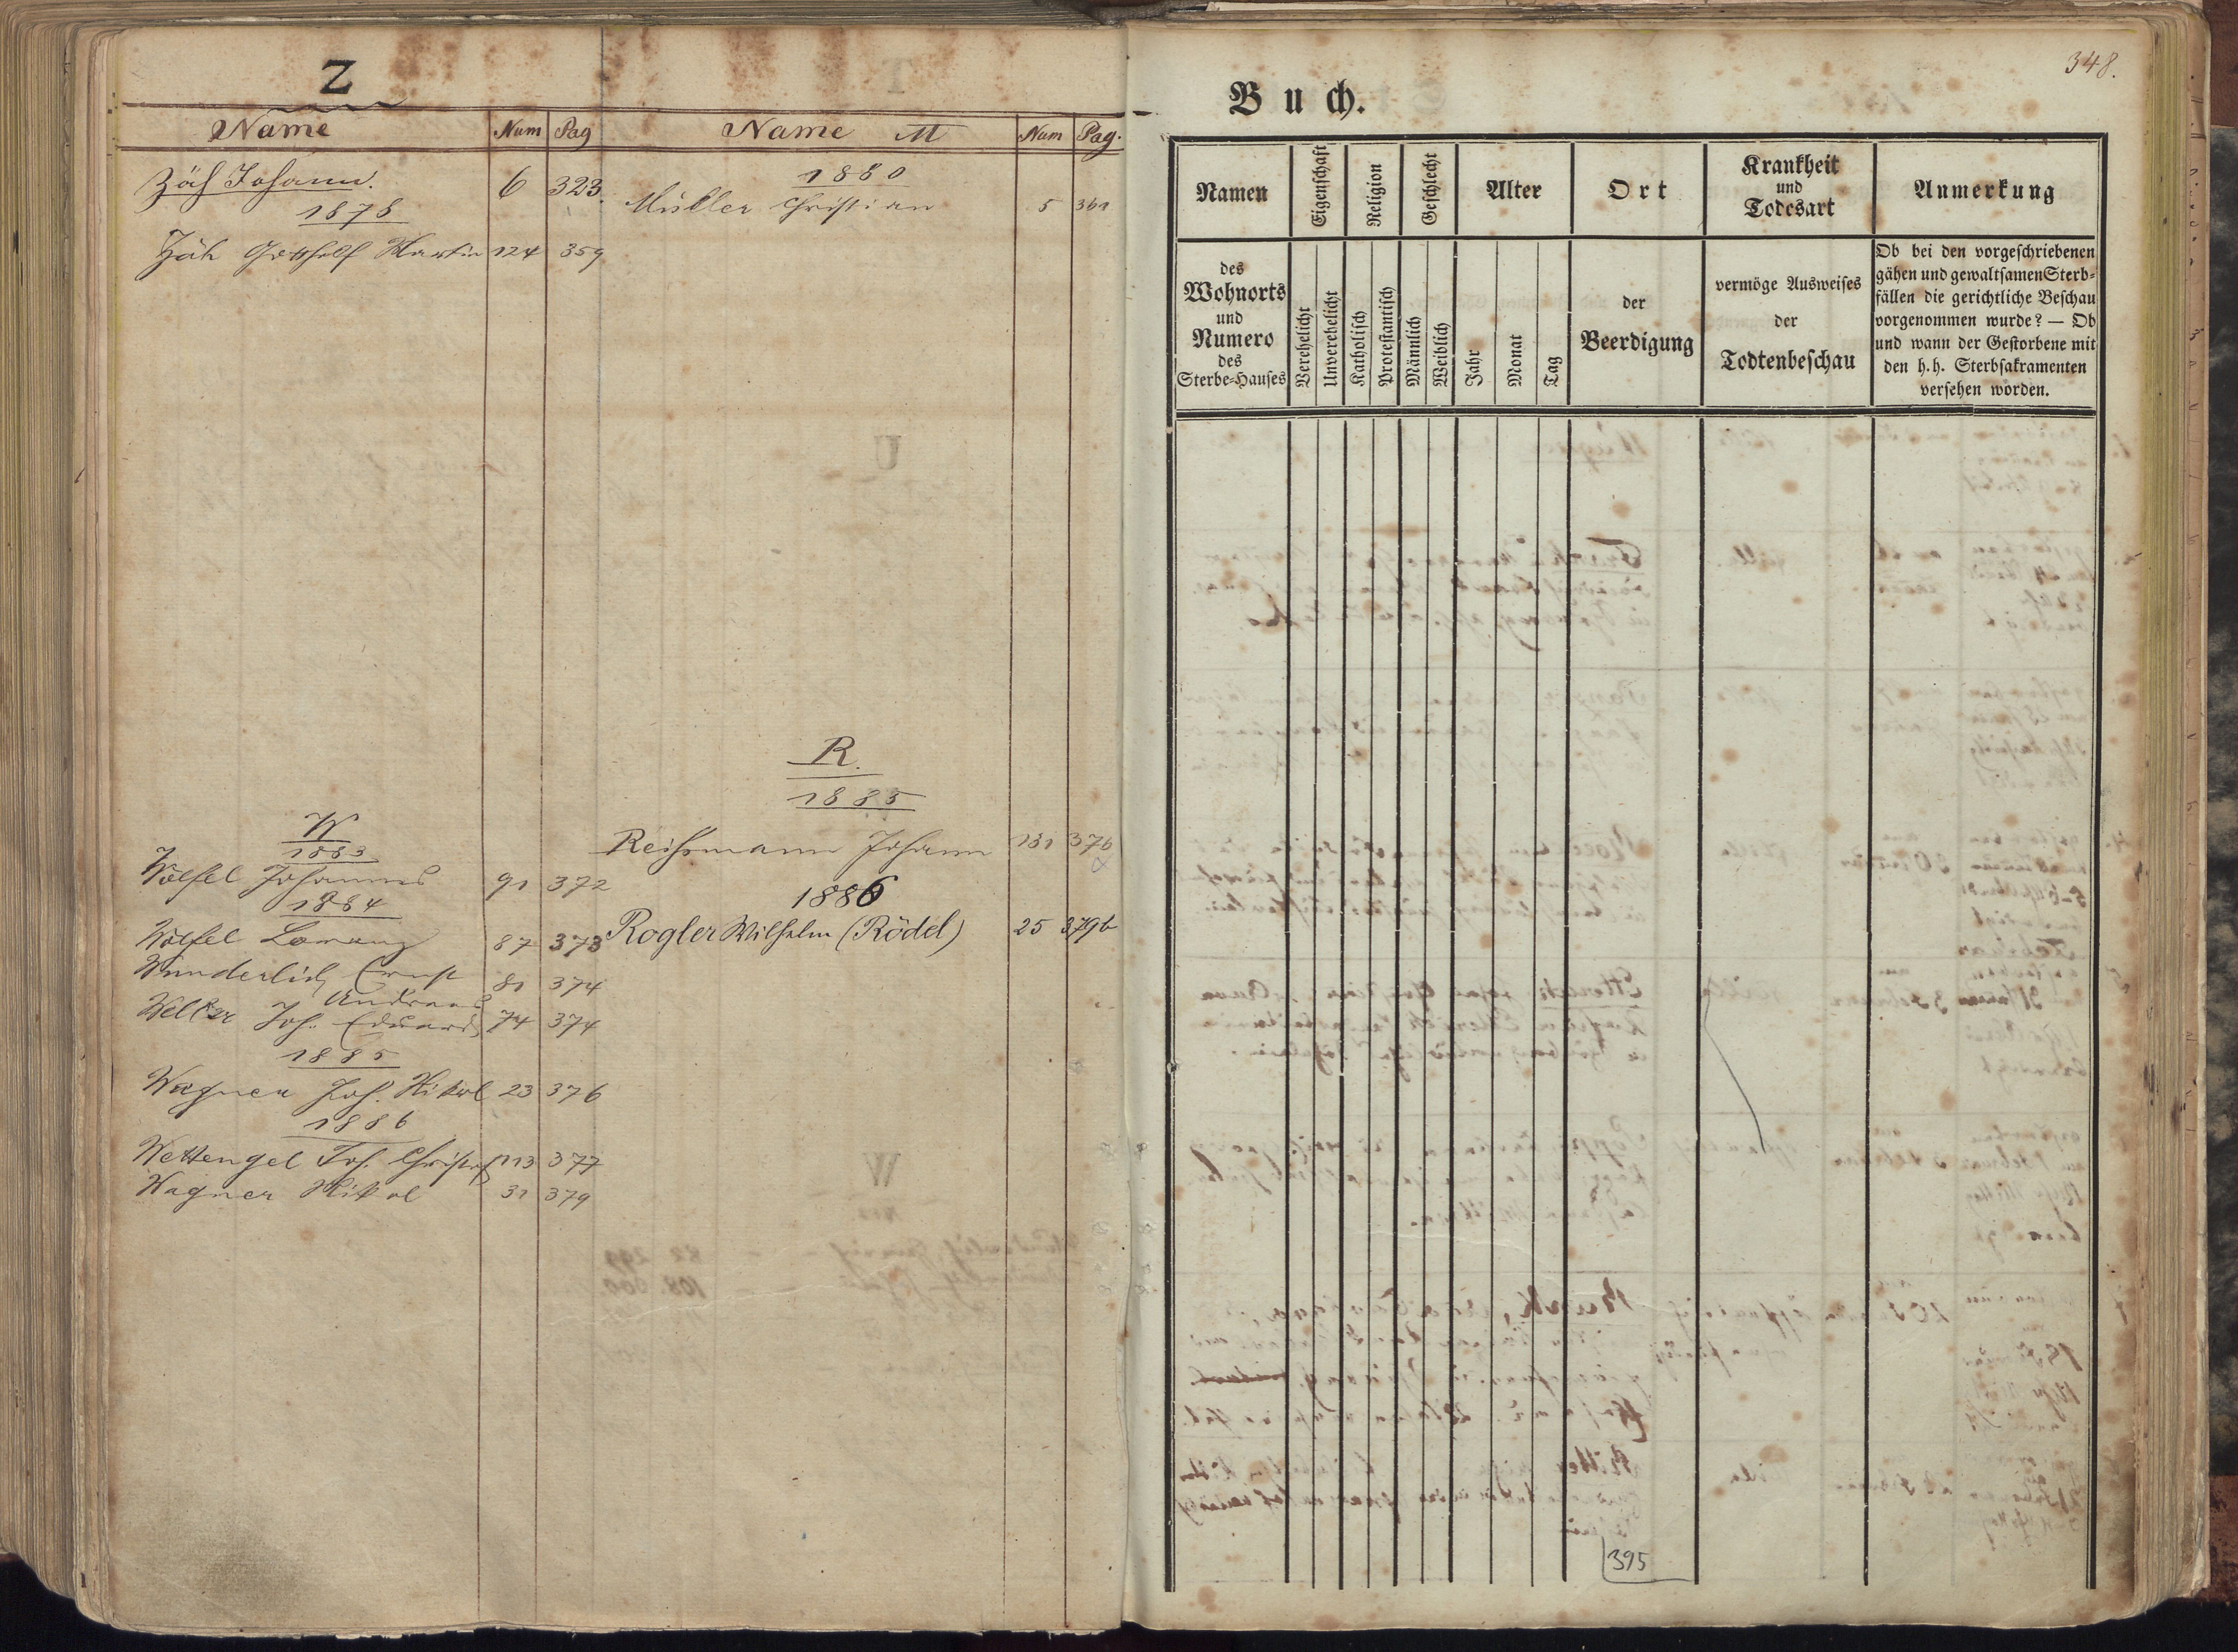 Z
Name Num Pag
Zäh Johann. 6 323.
1878
Zäh Gotthelf Martin 124 359
W
1883
Wölfel Johannes 91 372
1884
Wölfel Lorenz 87 373
Wunderlich Ernst 81 374
Andreas
Welker Joh. Eduard 74 374
1885
Wagner Joh. Nikol 23 376
1886
Wettengel Joh. Christof 113 377
Wagner Nikol 31 379
Name M Num Pag.
1880
Müller Christian 5 361
R.
1885
Reissmann Johann 131 376
1886
Rogler Wilhelm (Rödel) 25 379b
348.
Buch.
Namen
des
Wohnorts
und
Numero
des
Sterbe-Hauses
Eigenschaft
Verehelicht
Unverehelicht
Religion
Katholisch
Protestantisch
Geschlecht
Männlich
Weiblich
Alter
Jahr
Monat
Tag
Ort
der
Beerdigung
Krankheit
und
Todesart
vermöge Ausweises
der
Todtenbeschau
Anmerkung
Ob bei den vorgeschriebenen
gähen und gewaltsamen Sterb-
fällen die gerichtliche Beschau
vorgenommen wurde? — Ob
und wann der Gestorbene mit
den h.h. Sterbsakramenten
versehen worden.
395